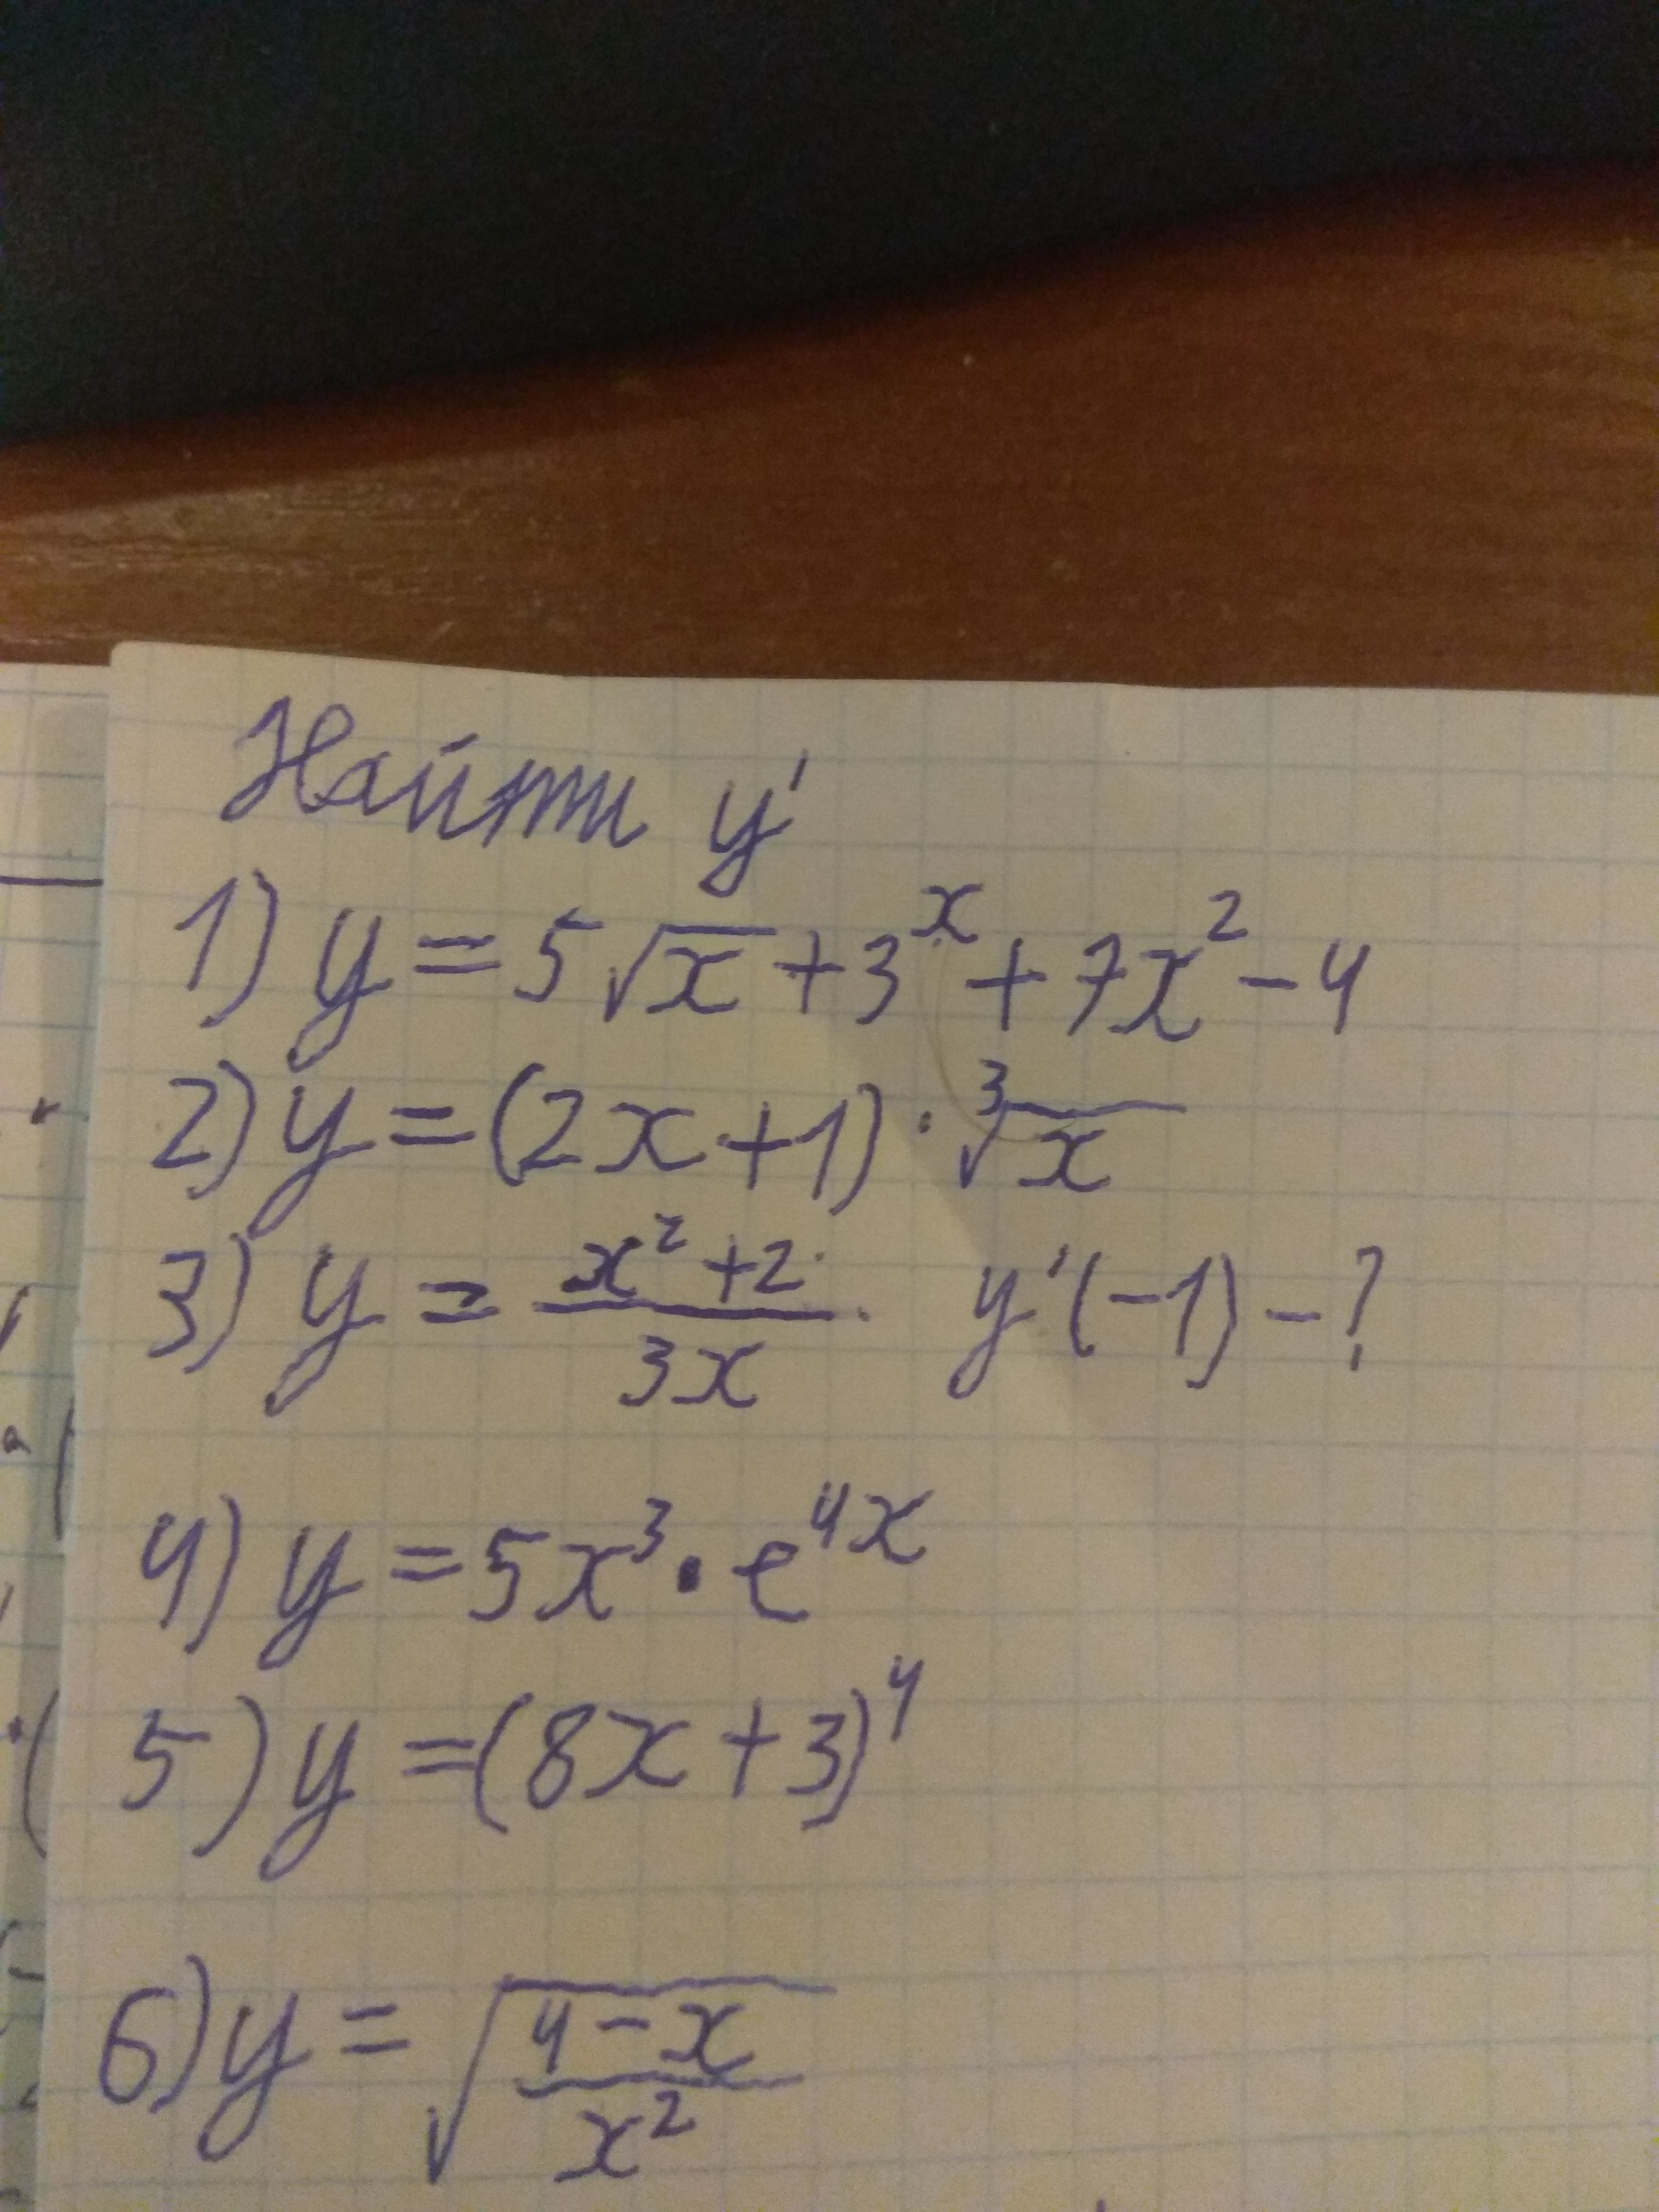 Найти y'
1) y = 5√x + 3^x + 7x² - 4
2) y = (2x + 1) · ∛x
3) y = (x² + 2)/(3x) y'(-1) - ?
4) y = 5x³ · e^(4x)
5) y = (8x + 3)⁴
6) y = √((4 - x)/x²)